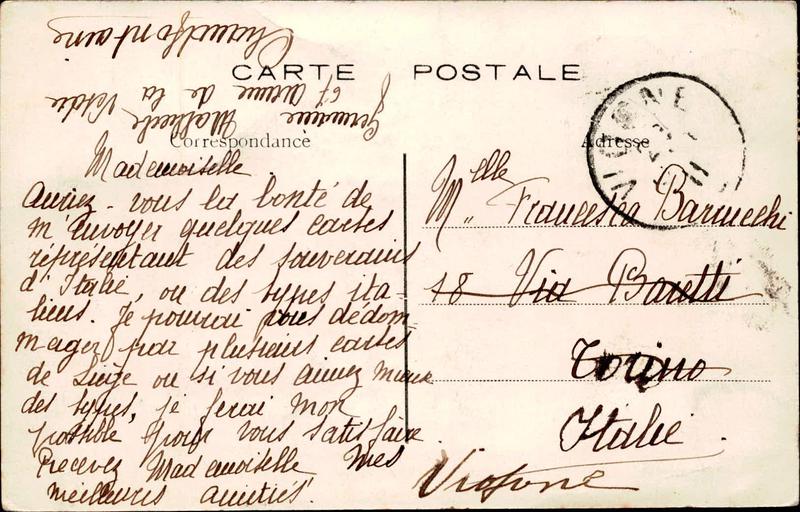 Chaudfontaine
CARTE POSTALE
67 avenue de la
Germaine
Correspondance
Adresse
VIGONE
Mademoiselle.
Auriez-vous la bonté de
m'envoyer quelques cartes
représentant des souverains
d'Italie, ou des types ita-
liens. Je pourrai vous dédom
mager par plusieurs cartes
de Liège ou si vous aimez mieux
des types, je ferai mon
possible pour vous satisfaire.
Recevez Mademoiselle mes
meilleures amitiés.
Melle Francesca Barucchi
18 Via Baretti
Torino
Italie.
Vigone